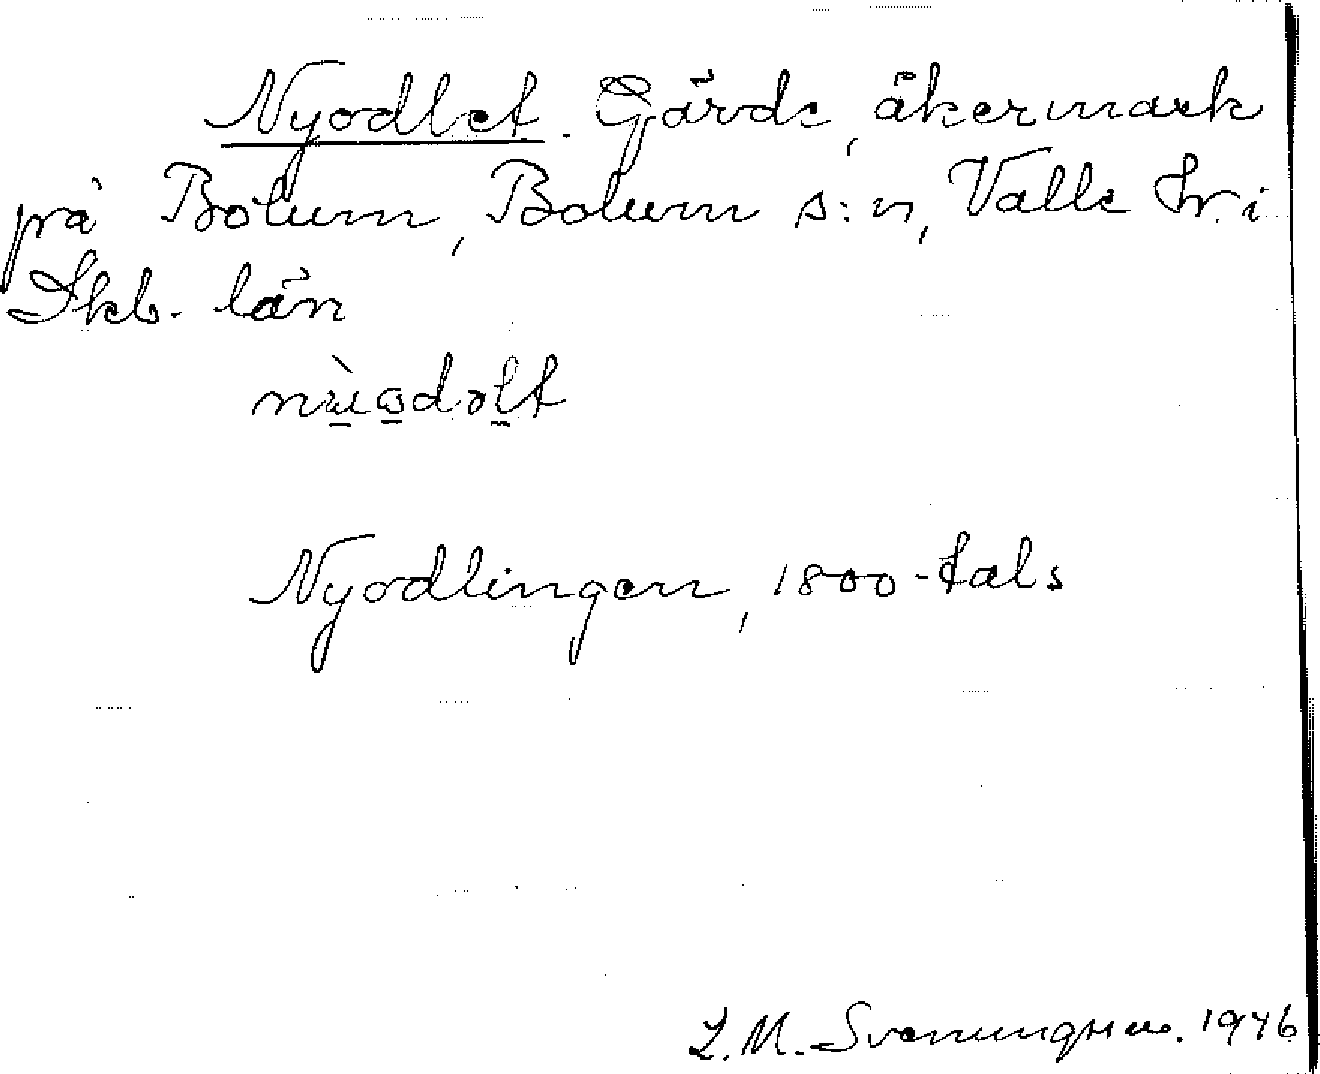 Nyodlet. Gärde, åkermark
på Bolum, Bolum s:n, Valle hr. i
Skb. län
Nyodlingen, 1800-tals
L. M. Svenungsson. 1946